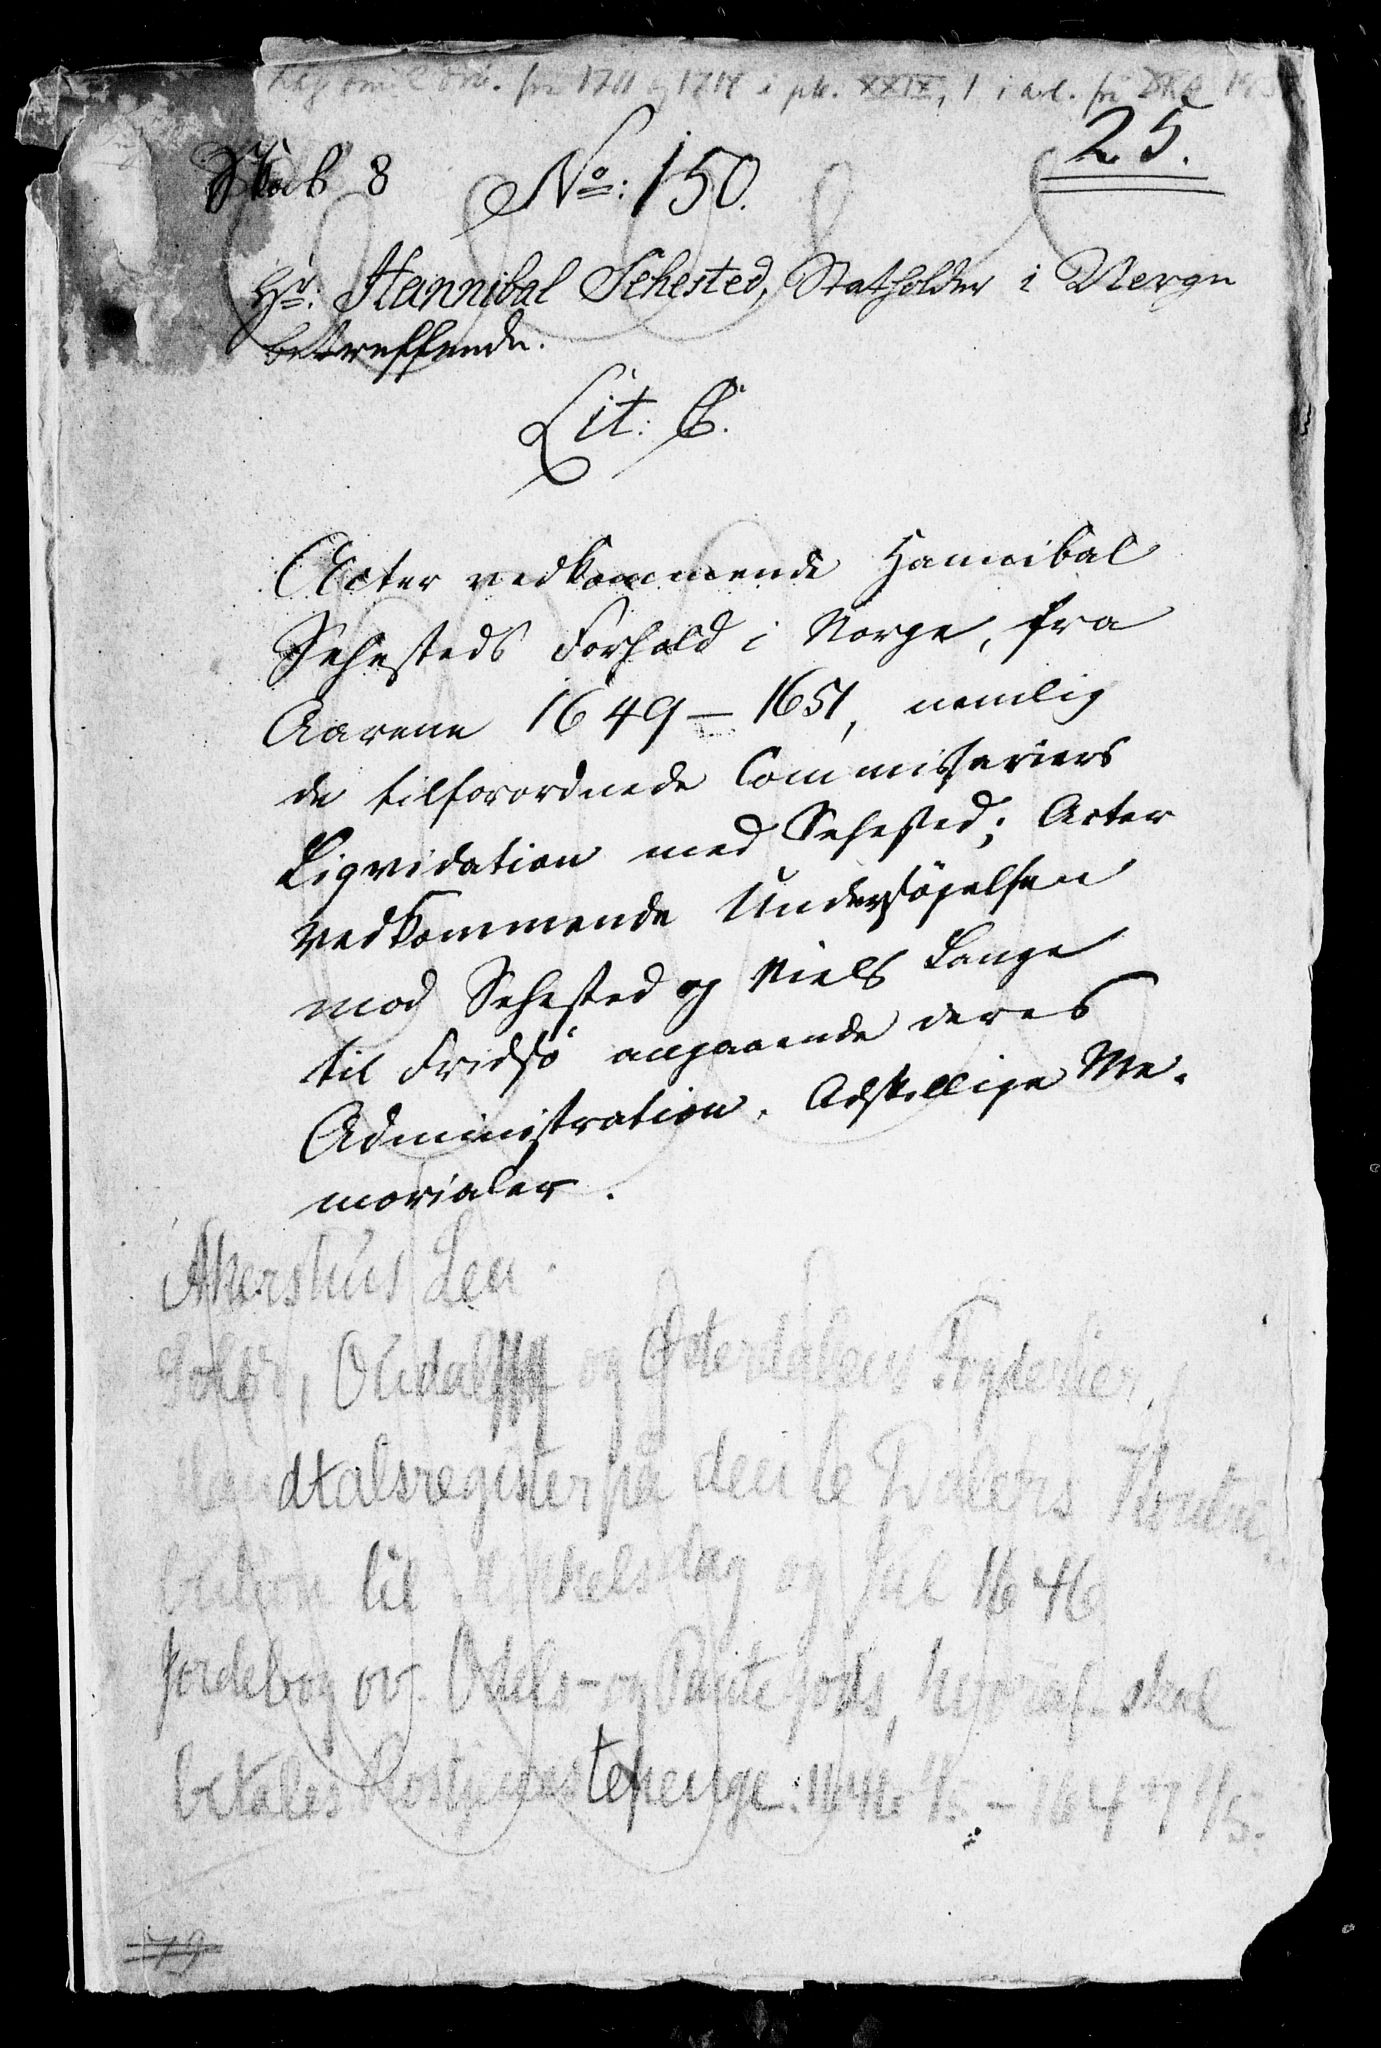 fra 1711 og 1718 i pk. XXIX, 1 i avl. fra DRA
25.
Skab 8 No: 150.
Hr. Hannibal Sehested, Statholder i Norge
betreffende.
Lit: C.
Acter vedkommende Hannibal
Sehesteds Forhold i Norge, fra
Aarene 1649 – 1651, nemlig
de tilforordnede Commissariers
Liqvidation med Sehested; Acter
vedkommende Undersøgelsen
mod Sehested og Niels Lange
til Fridsø angaaende deres
Administration. Adskillige Me-
morialer.
Akershus Len.
Solør, Oudalen og Østerdalens Fogderier.
Mandtalsregister på den 1e Dalers Kontri-
bution til Mikkelsdag og Jul 1646
Jordebog ov. Odels- og Pantegods, hvoraf skal
betales Rostjenestepenge. 1646 1/5 – 1647 1/5.
79